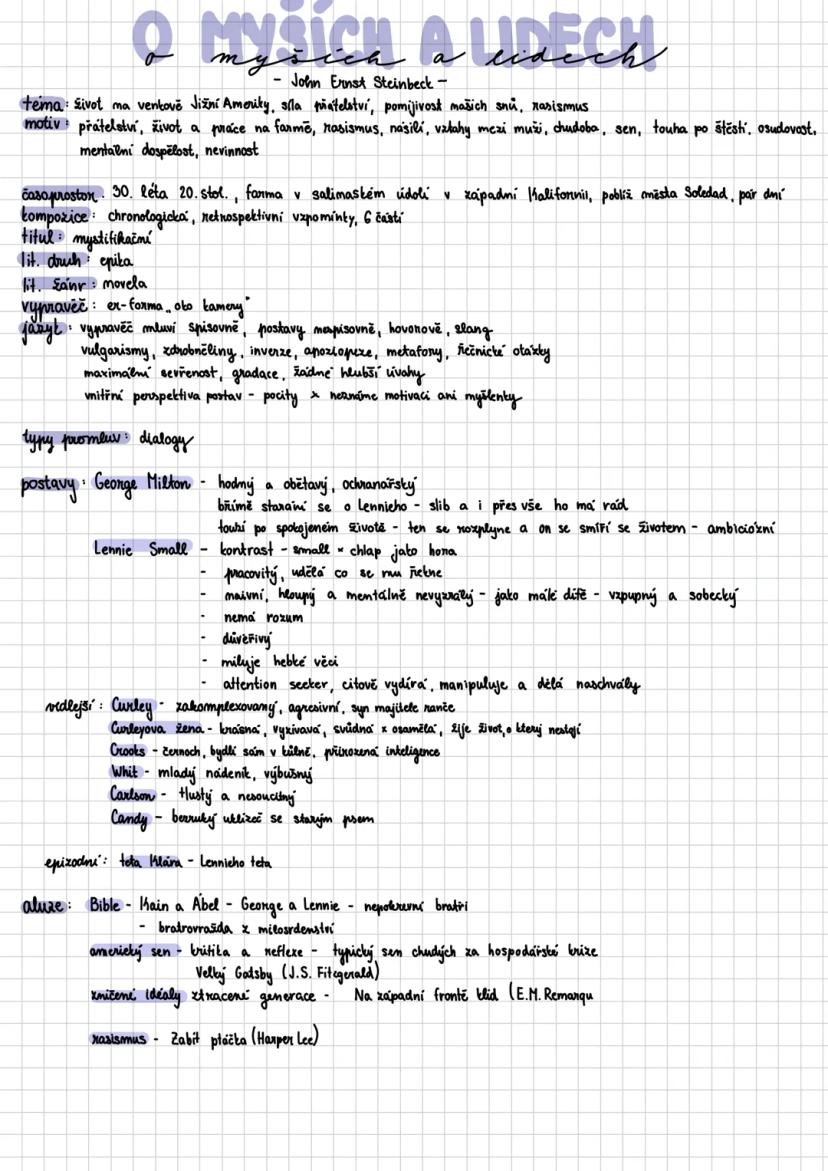 O MYŠÍCH A LIDECH
o myších a lidech
- John Ernst Steinbeck -
téma: život na venkově Jižní Ameriky, síla přátelství, pomíjivost našich snů, rasismus
motiv: přátelství, život a práce na farmě, rasismus, násilí, vztahy mezi muži, chudoba, sen, touha po štěstí, osudovost,
mentální dospělost, nevinnost
časoprostor: 30. léta 20. stol., farma v salinaském údolí v západní Kalifornii, poblíž města Soledad, pár dní
kompozice: chronologická, retrospektivní vzpomínky, 6 částí
titul: mystifikační
lit. druh: epika
lit. žánr: novela
vypravěč: er-forma „oko kamery"
jazyk: vypravěč mluví spisovně, postavy nespisovně, hovorově, slang
vulgarismy, zdrobněliny, inverze, apoziopeze, metafory, řečnické otázky
maximální sevřenost, gradace, žádné hlubší úvahy
vnitřní perspektiva postav - pocity x neznáme motivaci ani myšlenky
typy promluv: dialogy
postavy: George Milton - hodný a obětavý, ochranářský
břímě starání se o Lennieho - slib a i přes vše ho má rád
touží po spokojeném životě - ten se rozplyne a on se smíří se životem - ambiciózní
Lennie Small - kontrast - small x chlap jako hora
- pracovitý, udělá co se mu řekne
- naivní, hloupý a mentálně nevyzrálý - jako malé dítě - vzpupný a sobecký
- nemá rozum
- důvěřivý
- miluje hebké věci
- attention seeker, citově vydírá, manipuluje a dělá naschvály
vedlejší: Curley - zakomplexovaný, agresivní, syn majitele ranče
Curleyova žena - krásná, vyzívavá, svůdná x osamělá, žije život, o který nestojí
Crooks - černoch, bydlí sám v kůlně, přirozená inteligence
Whit - mladý nádeník, výbušný
Carlson - tlustý a nesoucitný
Candy - bezruký uklízeč se starým psem
epizodní: teta Klára - Lennieho teta
aluze: Bible - Kain a Ábel - George a Lennie - nepokrevní bratři
- bratrovražda z milosrdenství
americký sen - kritika a reflexe - typický sen chudých za hospodářské krize
Velký Gadsby (J.S. Fitzgerald)
zničené ideály ztracené generace - Na západní frontě klid (E.M. Remarqu
rasismus - Zabít ptáčka (Harper Lee)